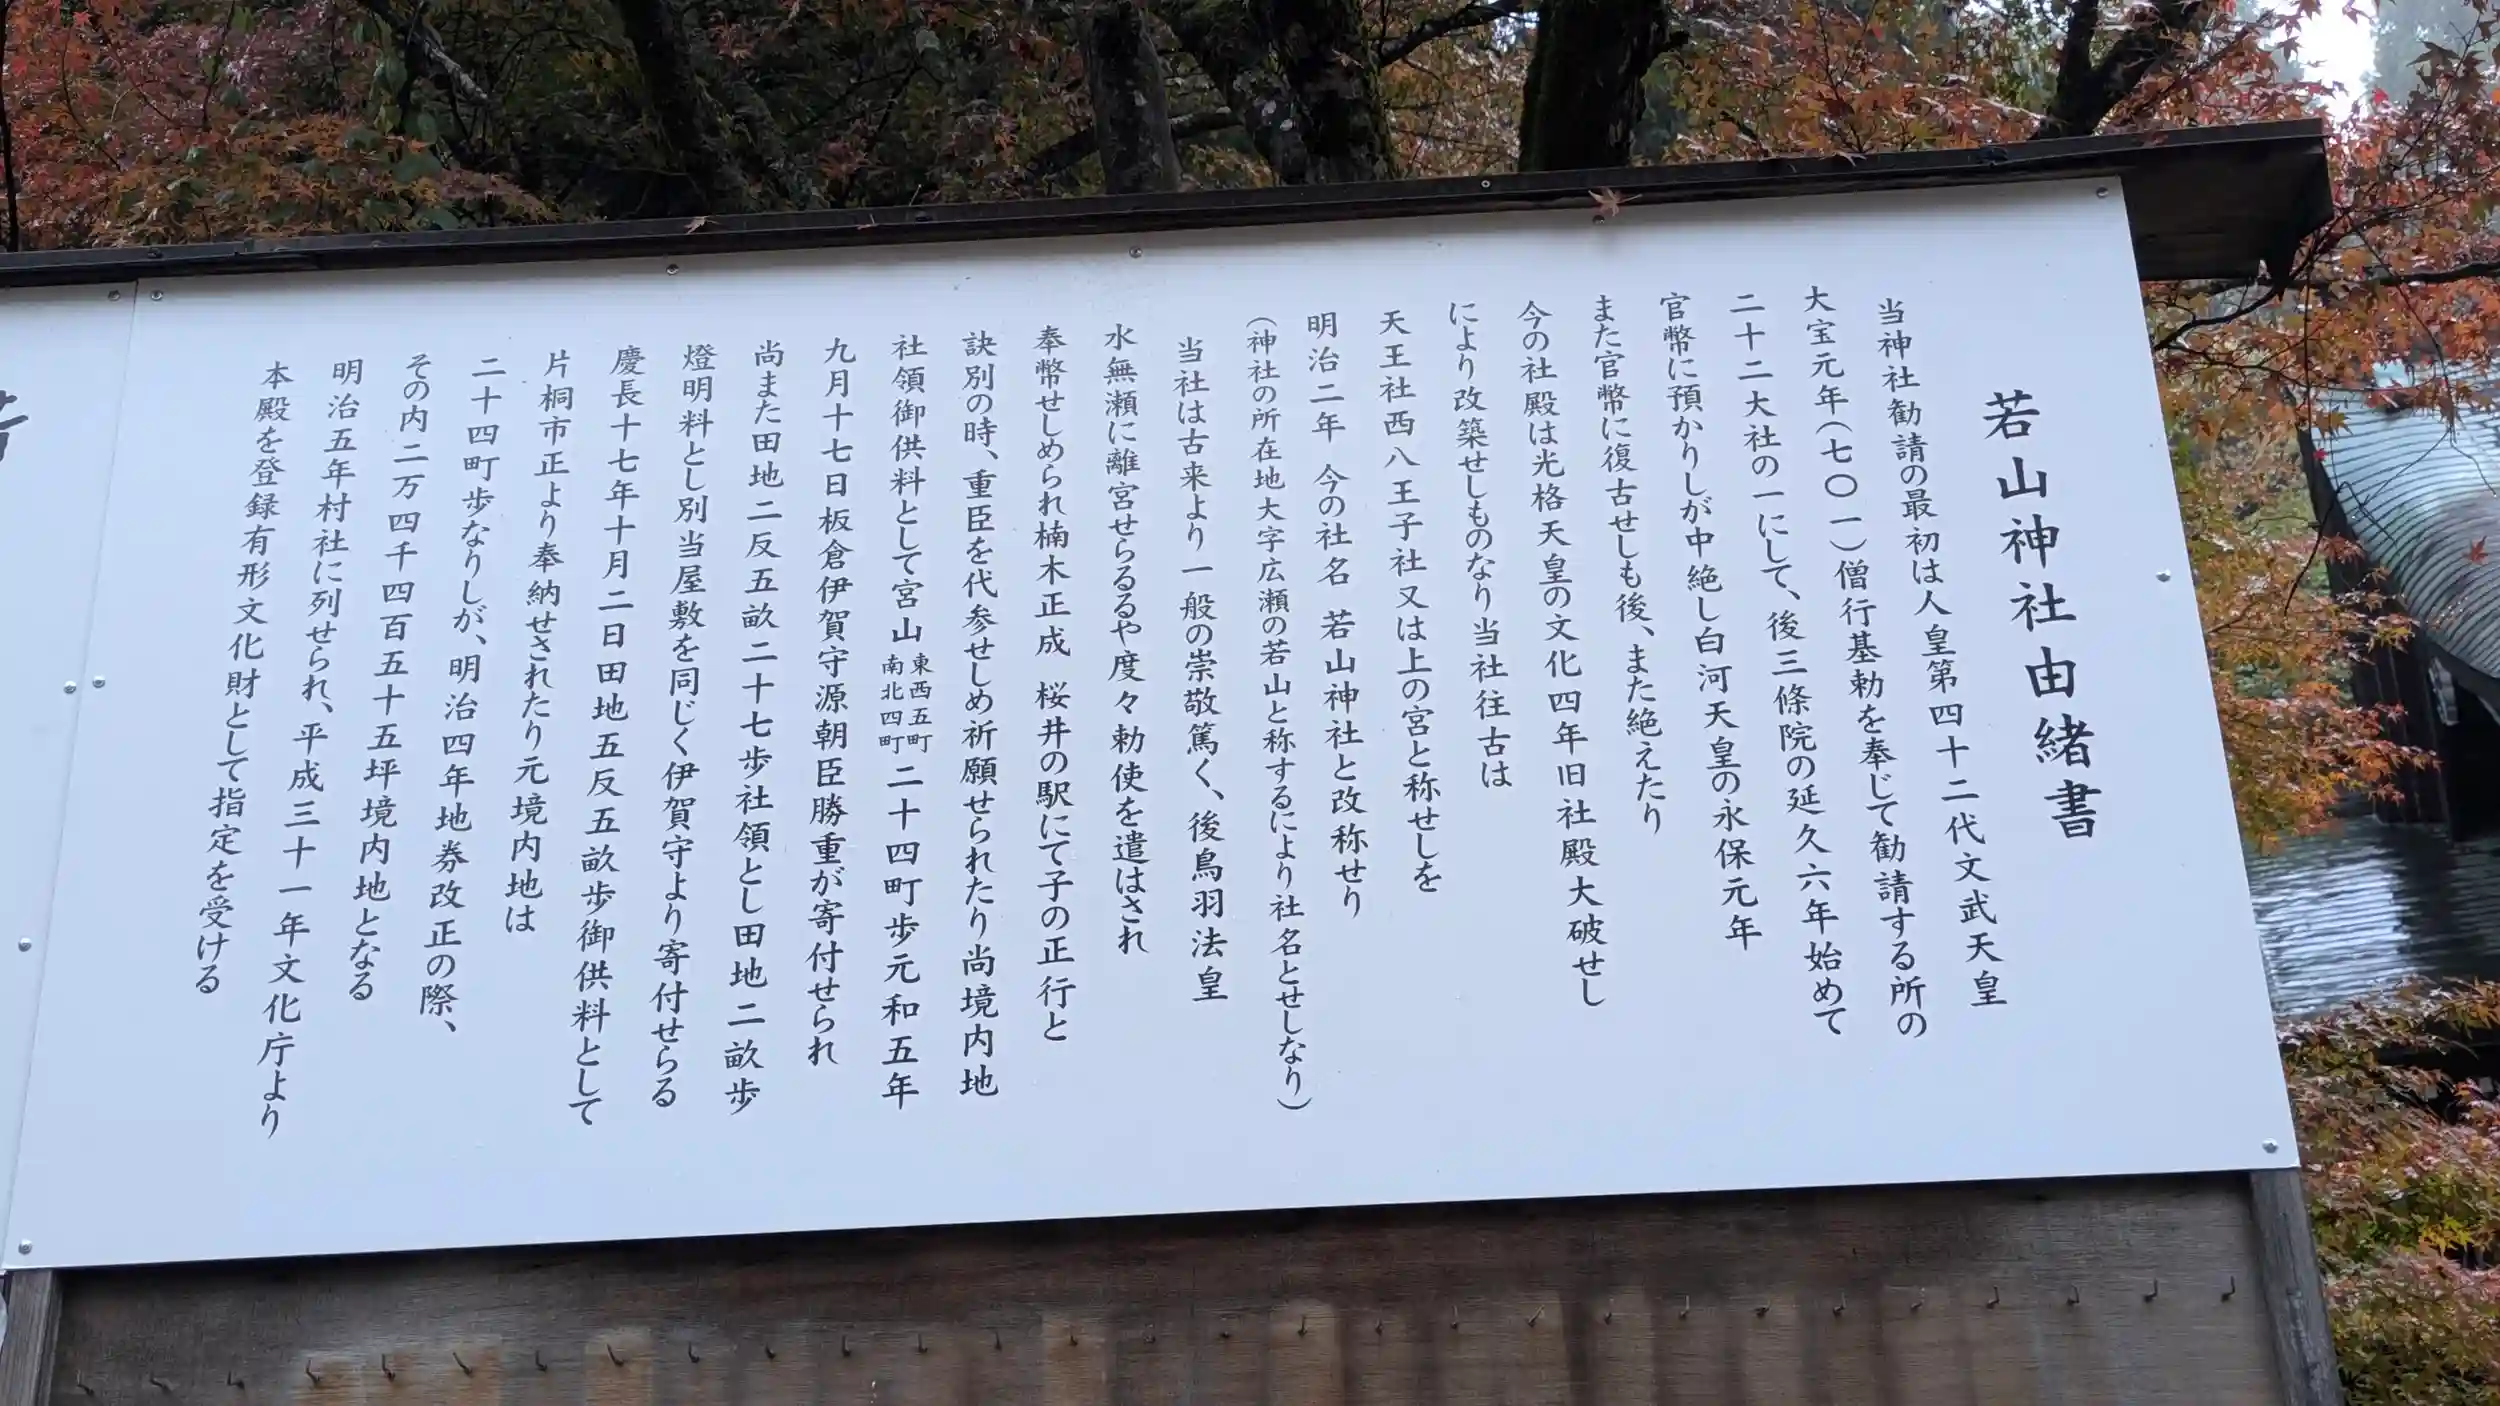 若山神社由緒書
当神社勧請の最初は人皇第四十二代文武天皇
大宝元年(七〇一)僧行基勅を奉じて勧請する所の
二十二大社の一にして、後三條院の延久六年始めて
官幣に預かりしが中絶し白河天皇の永保元年
また官幣に復古せしも後、また絶えたり
今の社殿は光格天皇の文化四年旧社殿大破せし
により改築せしものなり当社往古は
天王社西八王子社又は上の宮と称せしを
明治二年 今の社名 若山神社と改称せり
(神社の所在地大字広瀬の若山と称するにより社名とせしなり)
当社は古来より一般の崇敬篤く、後鳥羽法皇
水無瀬に離宮せらるるや度々勅使を遣はされ
奉幣せしめられ楠木正成 桜井の駅にて子の正行と
訣別の時、重臣を代参せしめ祈願せられたり尚境内地
社領御供料として宮山東西五町南北四町二十四町歩元和五年
九月十七日板倉伊賀守源朝臣勝重が寄付せられ
尚また田地二反五畝二十七歩社領とし田地二畝歩
燈明料とし別当屋敷を同じく伊賀守より寄付せらる
慶長十七年十月二日田地五反五畝歩御供料として
片桐市正より奉納せされたり元境内地は
二十四町歩なりしが、明治四年地券改正の際、
その内二万四千四百五十五坪境内地となる
明治五年村社に列せられ、平成三十一年文化庁より
本殿を登録有形文化財として指定を受ける